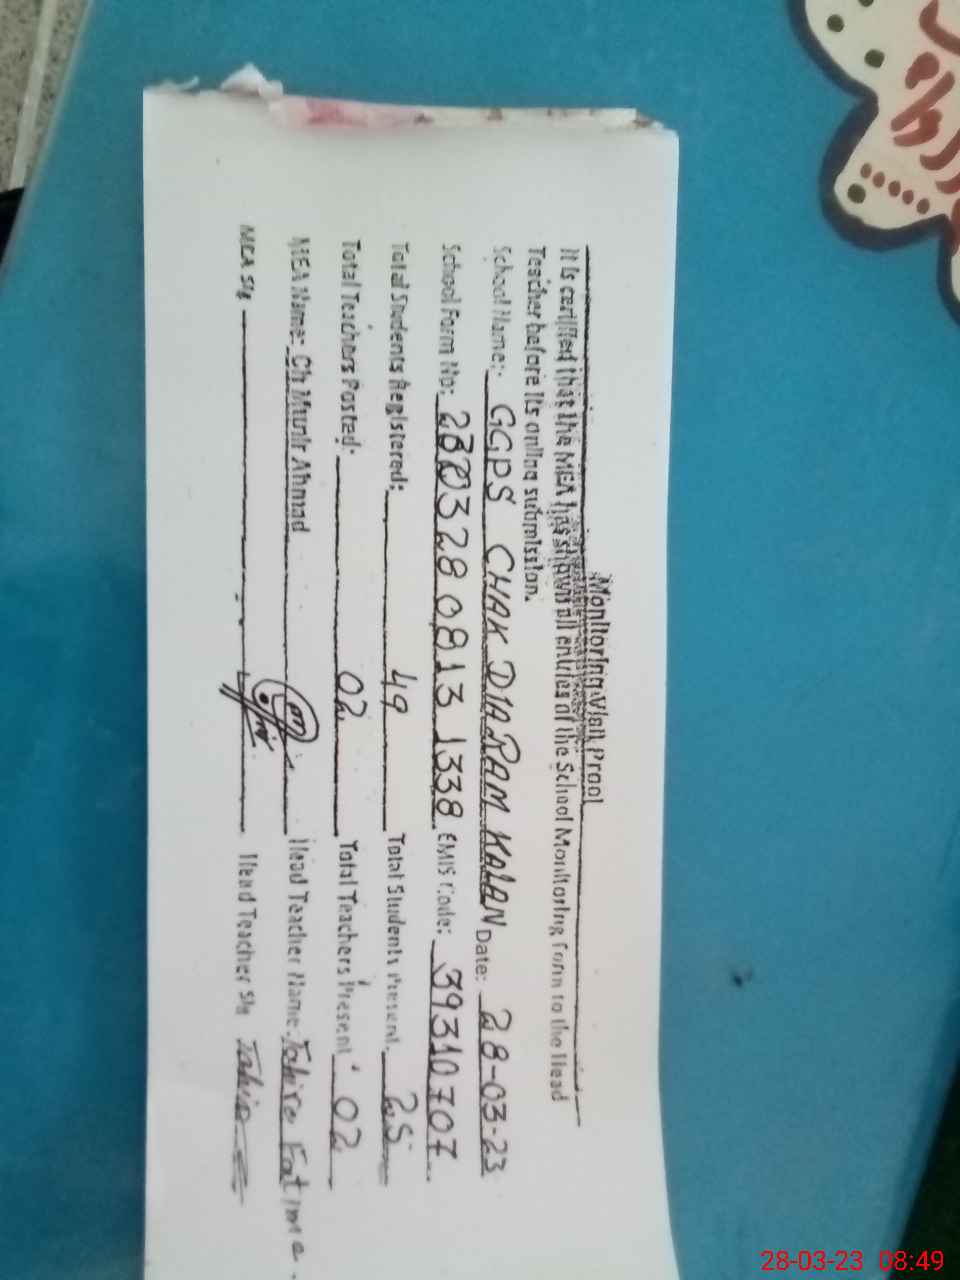 Monitoring Visit Proof
It is certified that the MEA has shown all entries of the School Monitoring Form to the Head
Teacher before its online submission.
School Name:- GGPS CHAK DIARAM KALAN Date: 28-03-23
School Form No: 2303280813 1338 EMIS Code: 39310707
Total Students Registered: 49 Total Students Present. 25
Total Teachers Posted: 02 Total Teachers Present 02
MEA Name: Ch Munir Ahmad Head Teacher Name. Tahira Fatima.
MEA Sig Head Teacher Sig Tahira
28-03-23 08:49